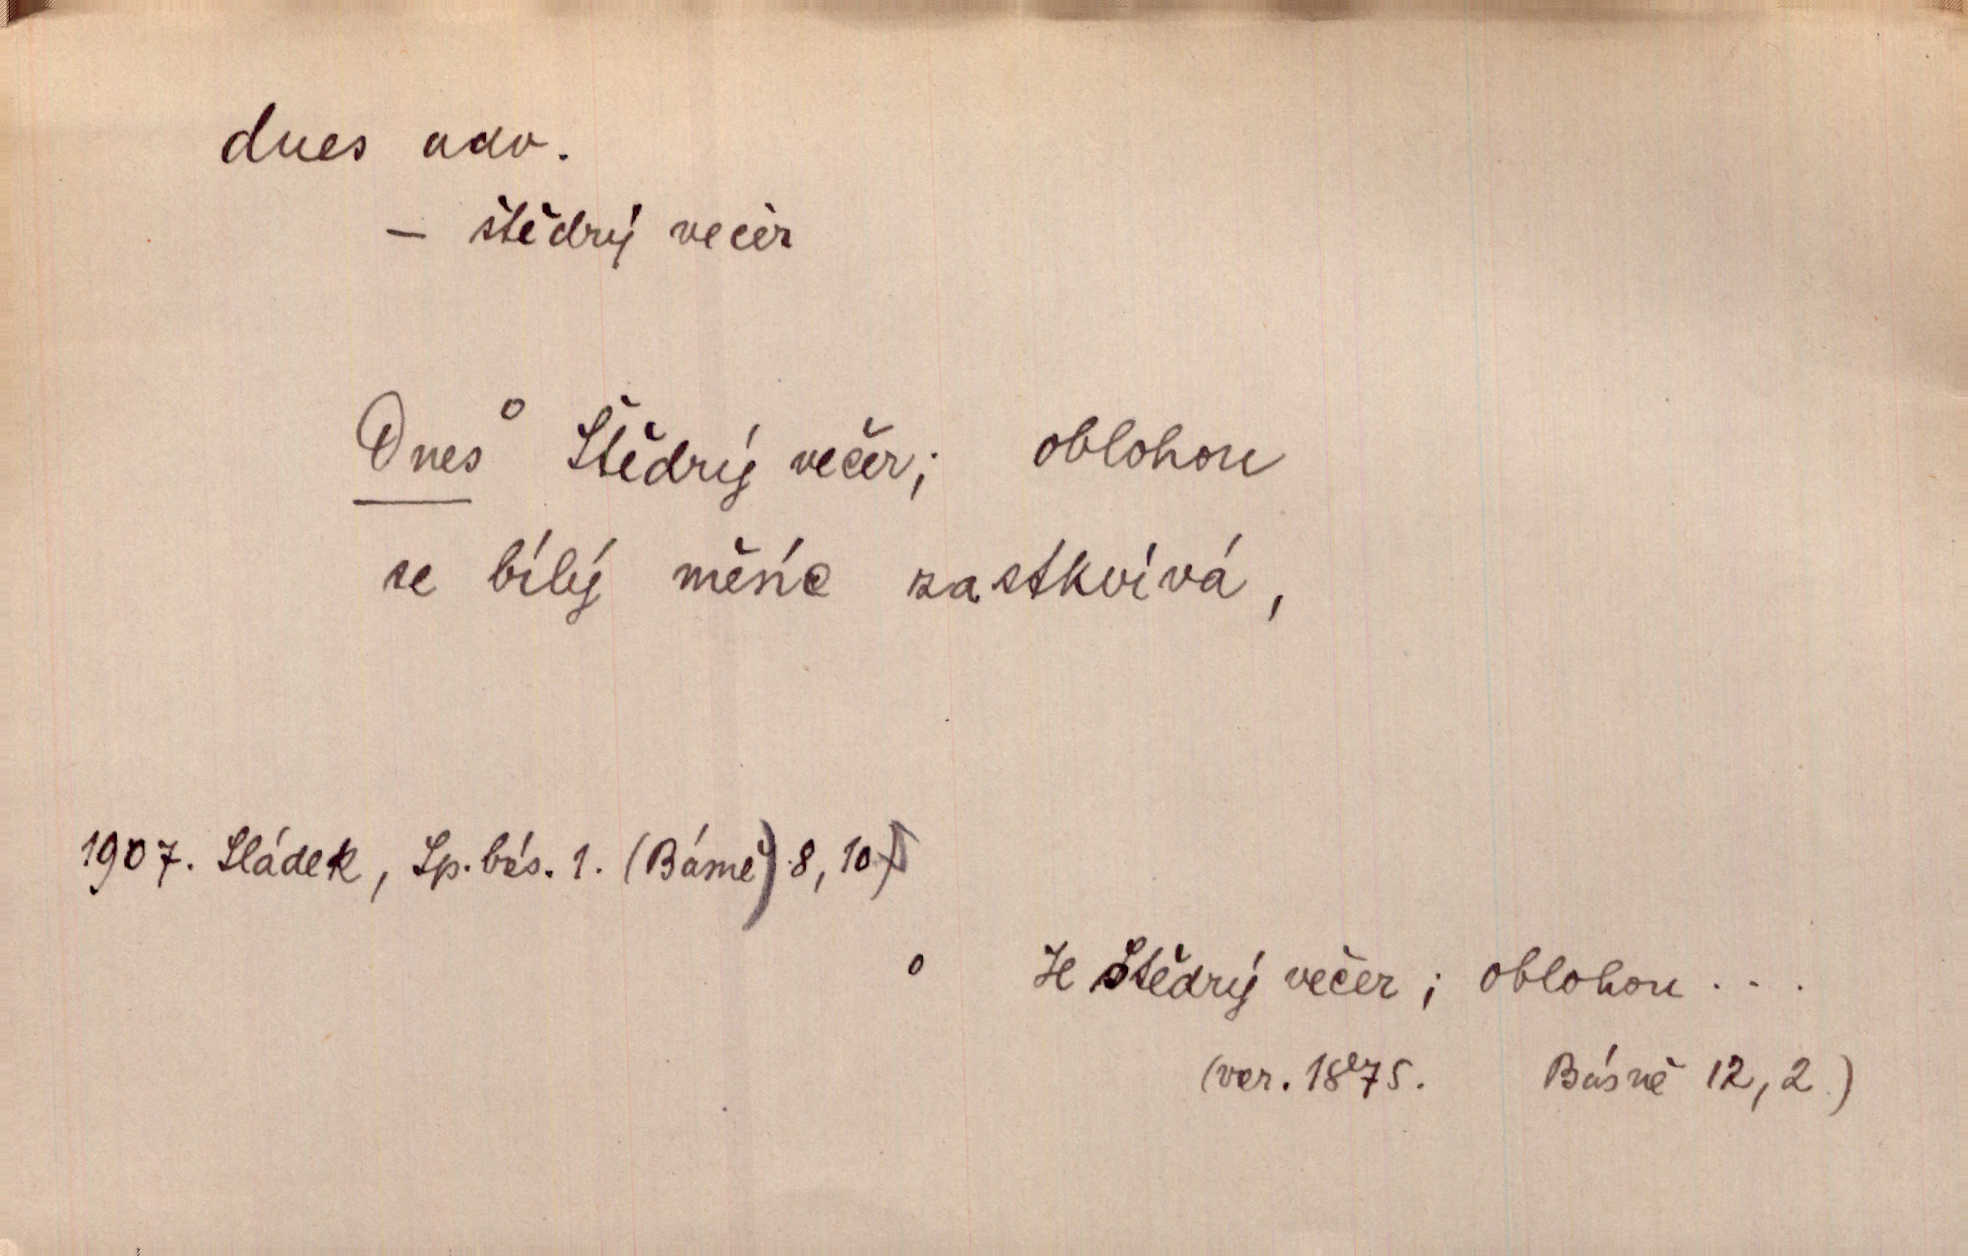 dnes adv.
– štědrý večer
Dnes° Štědrý večer; oblohou
se bílý měsíc zastkvívá,
1907. Sládek, Sp. bás. 1. (Básně) 8, 10)
° Je Štědrý večer; oblohou . . .
(ver. 1875. Básně 12, 2.)